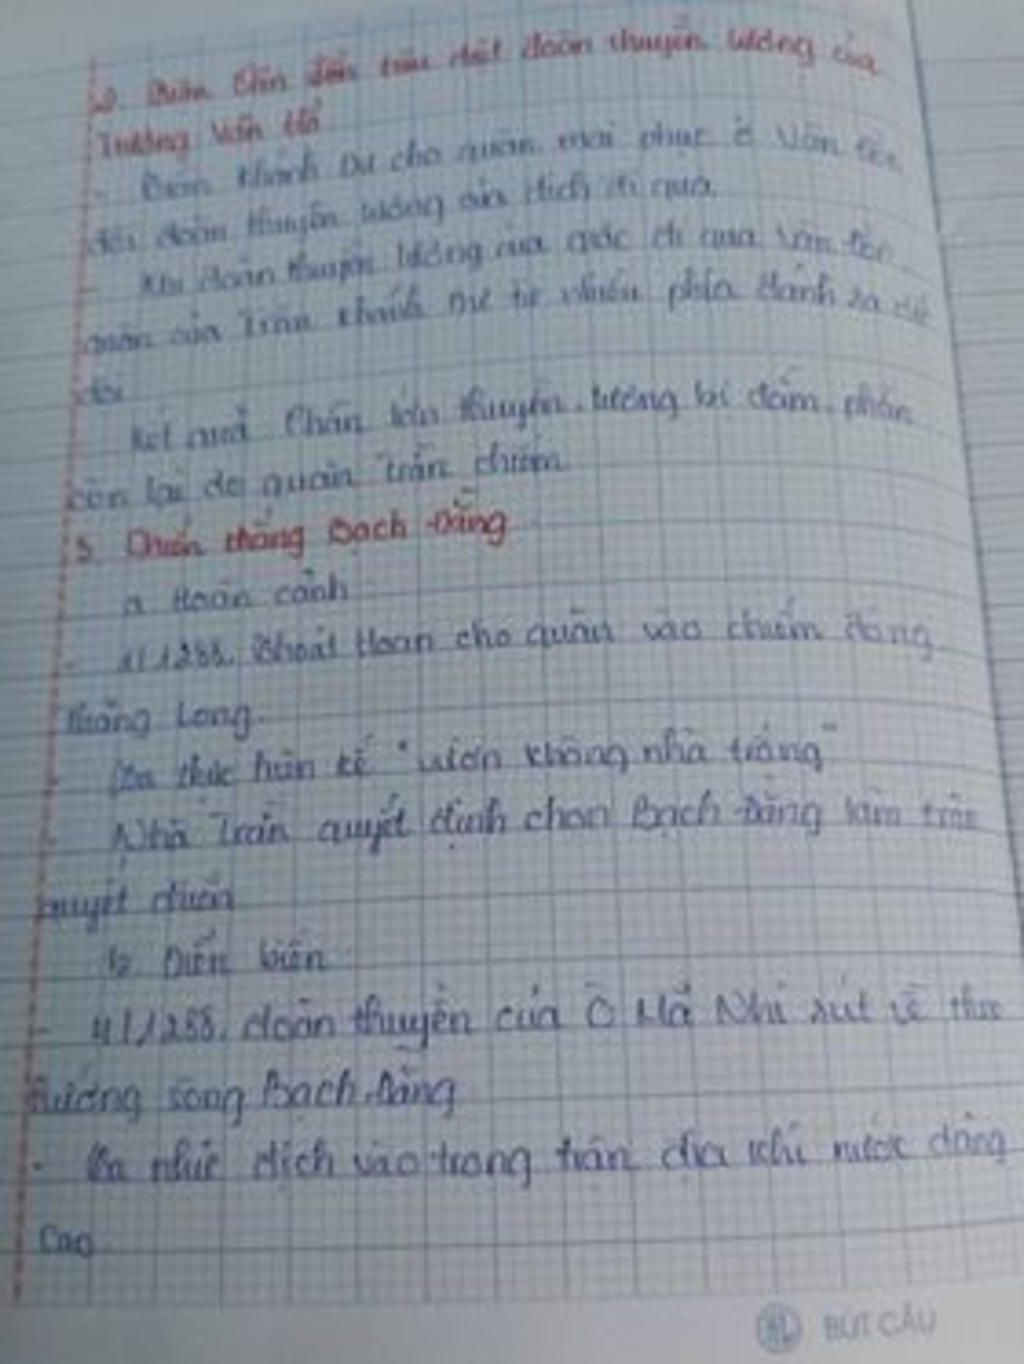 2) Trận Vân Đồn tiêu diệt đoàn thuyền lương của
Trương Văn Hổ
- Trần Khánh Dư cho quân mai phục ở Vân Đồn
đợi đoàn thuyền lương của địch đi qua.
- Khi đoàn thuyền lương của giặc đi qua Vân Đồn
quân của Trần Khánh Dư từ nhiều phía đánh ra dữ
dội
Kết quả: Phần lớn thuyền lương bị đắm, phần
còn lại do quân Trần chiếm
3. Chiến thắng Bạch Đằng
a. Hoàn cảnh
- 1/1288, Thoát Hoan cho quân vào chiếm đóng
Thăng Long.
- Ta thực hiện kế "vườn không nhà trống"
- Nhà Trần quyết định chọn Bạch Đằng làm trận
quyết chiến
b. Diễn biến
- 4/1288, đoàn thuyền của Ô Mã Nhi rút về theo
hướng sông Bạch Đằng
- Ta nhử địch vào trong trận địa khi nước dâng
cao
BÚT CẦU